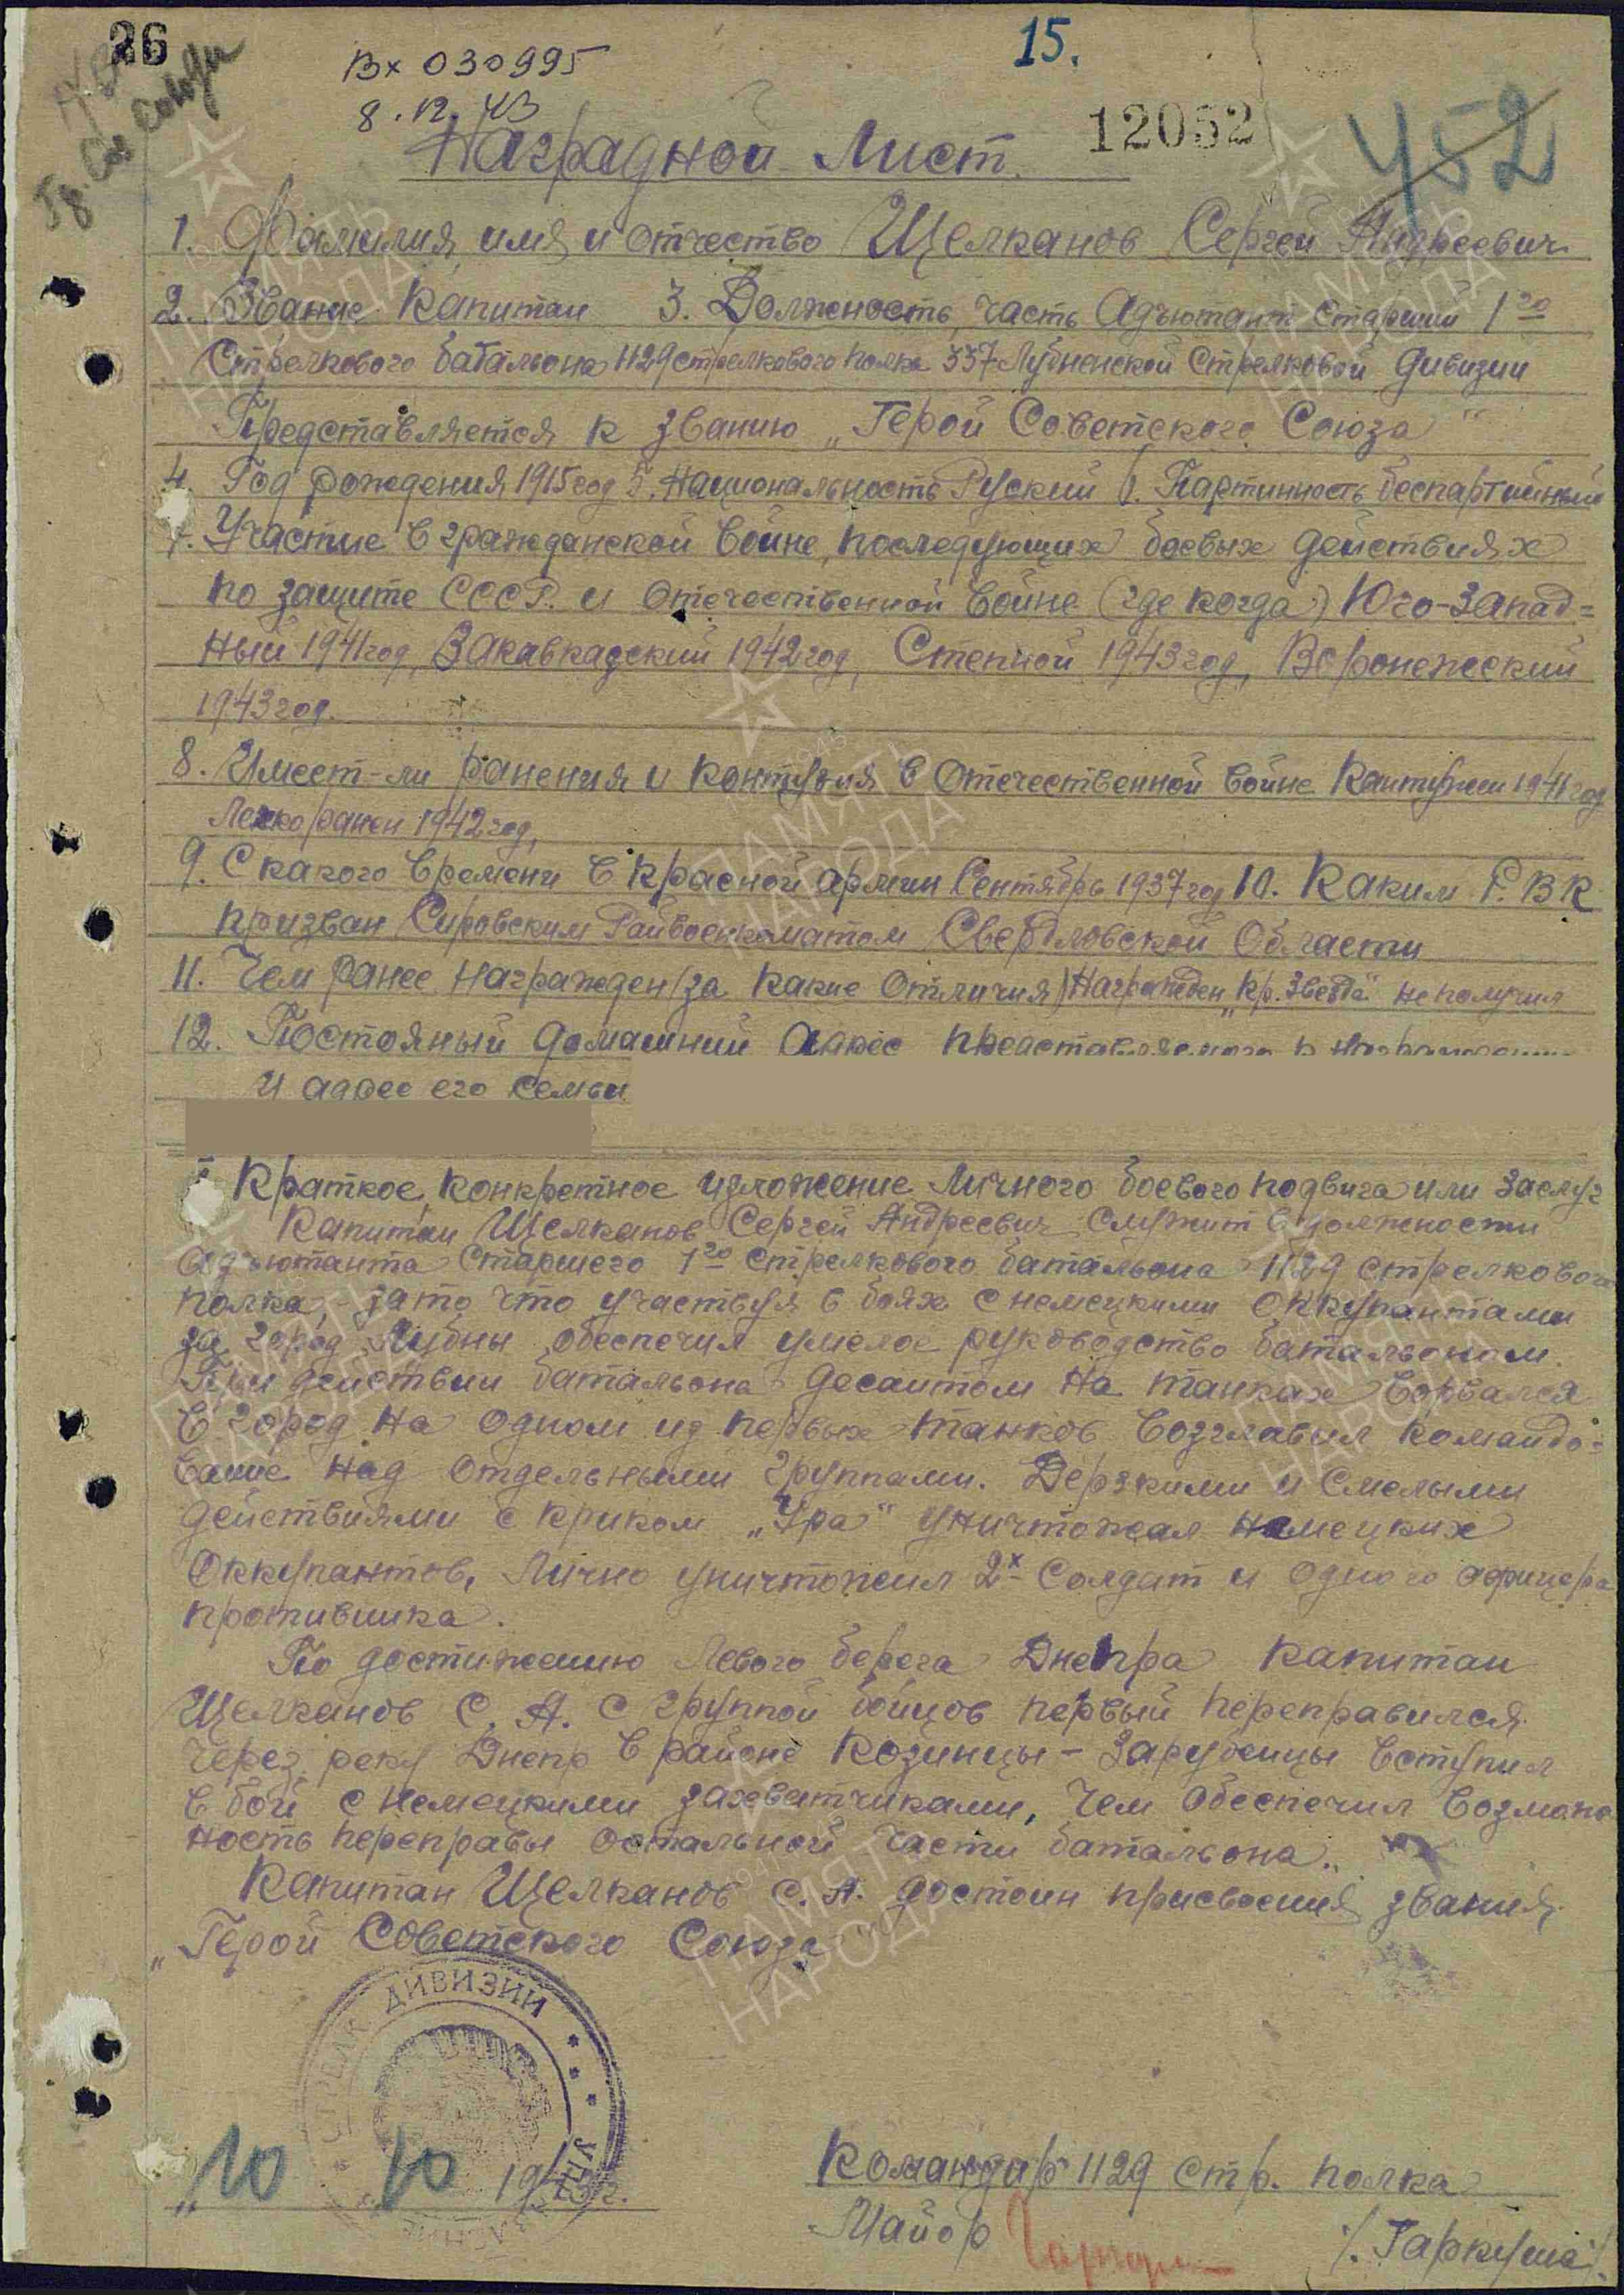 26
Вх 030995
15.
8.12.43
12052
452
Гв. Сов Союза
Наградной Лист.
1. Фамилия, имя и отчество Щелканов Сергей Андреевич
2. Звание Капитан 3. Должность, часть Адъютант Старший 1го
Стрелкового батальона 1129 стрелкового полка 337 Лубненской Стрелковой дивизии
Представляется к званию „Герой Советского Союза"
4. Год рождения 1915 год 5. Национальность Руский 6. Партийность беспартийный
7. Участие в гражданской войне, последующих боевых действиях
по защите СССР. и Отечественной войне (где когда) Юго-Запад=
ный 1941 год, Закавкадский 1942 год, Степной 1943 год, Воронежский
1943 год.
8. Имеет-ли ранения и контузия в Отечественной войне Контужен 1941 год
Легко ранен 1942 год,
9. С какого времени в Красной армии Сентябрь 1937 год 10. Каким Р.В.К.
призван Сировским Райвоенкоматом Свердловской Области
11. Чем ранее награжден (за какие отличия) Награжден „Кр. Звезда" не получил
12. Постояный домашний адрес представляемого к награждению
и адрес его семьи
Краткое, конкретное изложение личного боевого подвига или заслуг
Капитан Щелканов Сергей Андреевич служит в должности
адъютанта Старшего 1го стрелкового батальона 1129 стрелкового
полка, - за то что участвуя в боях с немецкими оккупантами
за город Лубны обеспечил умелое руководство батальоном.
При действии батальона десантом на танках ворвался
в город на одном из первых танков возглавил командо=
вание над отдельными группами. Дерзкими и смелыми
действиями с криком „Ура" уничтожал немецких
оккупантов, Лично уничтожил 2х солдат и одного офицера
противника.
По достижению левого берега Днепра капитан
Щелканов С. А. с группой бойцов первый переправился
через реку Днепр в районе Козинцы - Зарубенцы вступил
в бой с немецкими захватчиками, чем обеспечил возмож
ность переправы остальной части батальона.
Капитан Щелканов С. А. достоин присвоения звания
„Герой Советского Союза"
СТРЕЛК ДИВИЗИИ
„10 10 1943 г.
Командир 1129 стр. полка
Майор
/. Гаркуша /.
ПАМЯТЬ НАРОДА